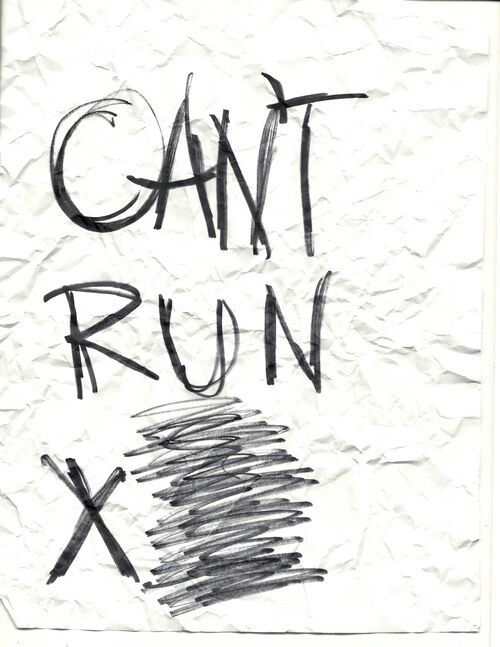 CANT
RUN
X